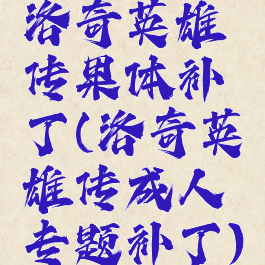 洛奇英雄
传果体补
丁(洛奇英
雄传成人
专题补丁)